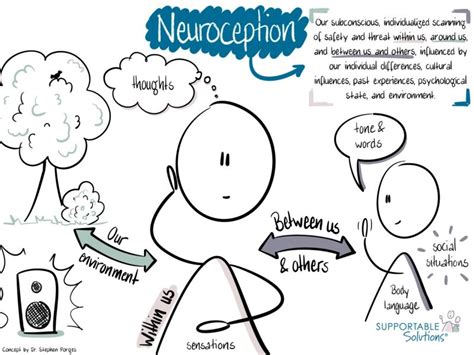 Neuroception
Our subconscious, individualized scanning
of safety and threat within us, around us,
and between us and others, influenced by
our individual differences, cultural
influences, past experiences, psychological
state, and environment.
thoughts
tone &
words
Our
environment
Between us
& others
Within us
sensations
social
situations
Body
language
Concept by Dr. Stephen Porges
SUPPORTABLE
Solutions®